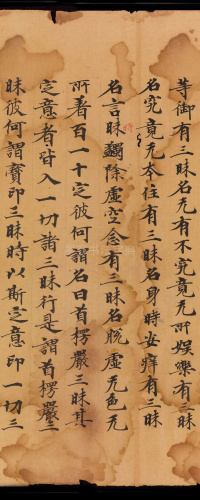 等御有三昧名无有不究竟无所娛樂有三昧
名究竟无本住有三昧名身時安痒有三昧
名言昧蠲除虛空念有三昧名脫虛无色无
所著百一十定彼何謂名曰首楞嚴三昧其
定意者皆入一切諸三昧行是謂首楞嚴三
昧彼何謂寶印三昧時以斯定意印一切三